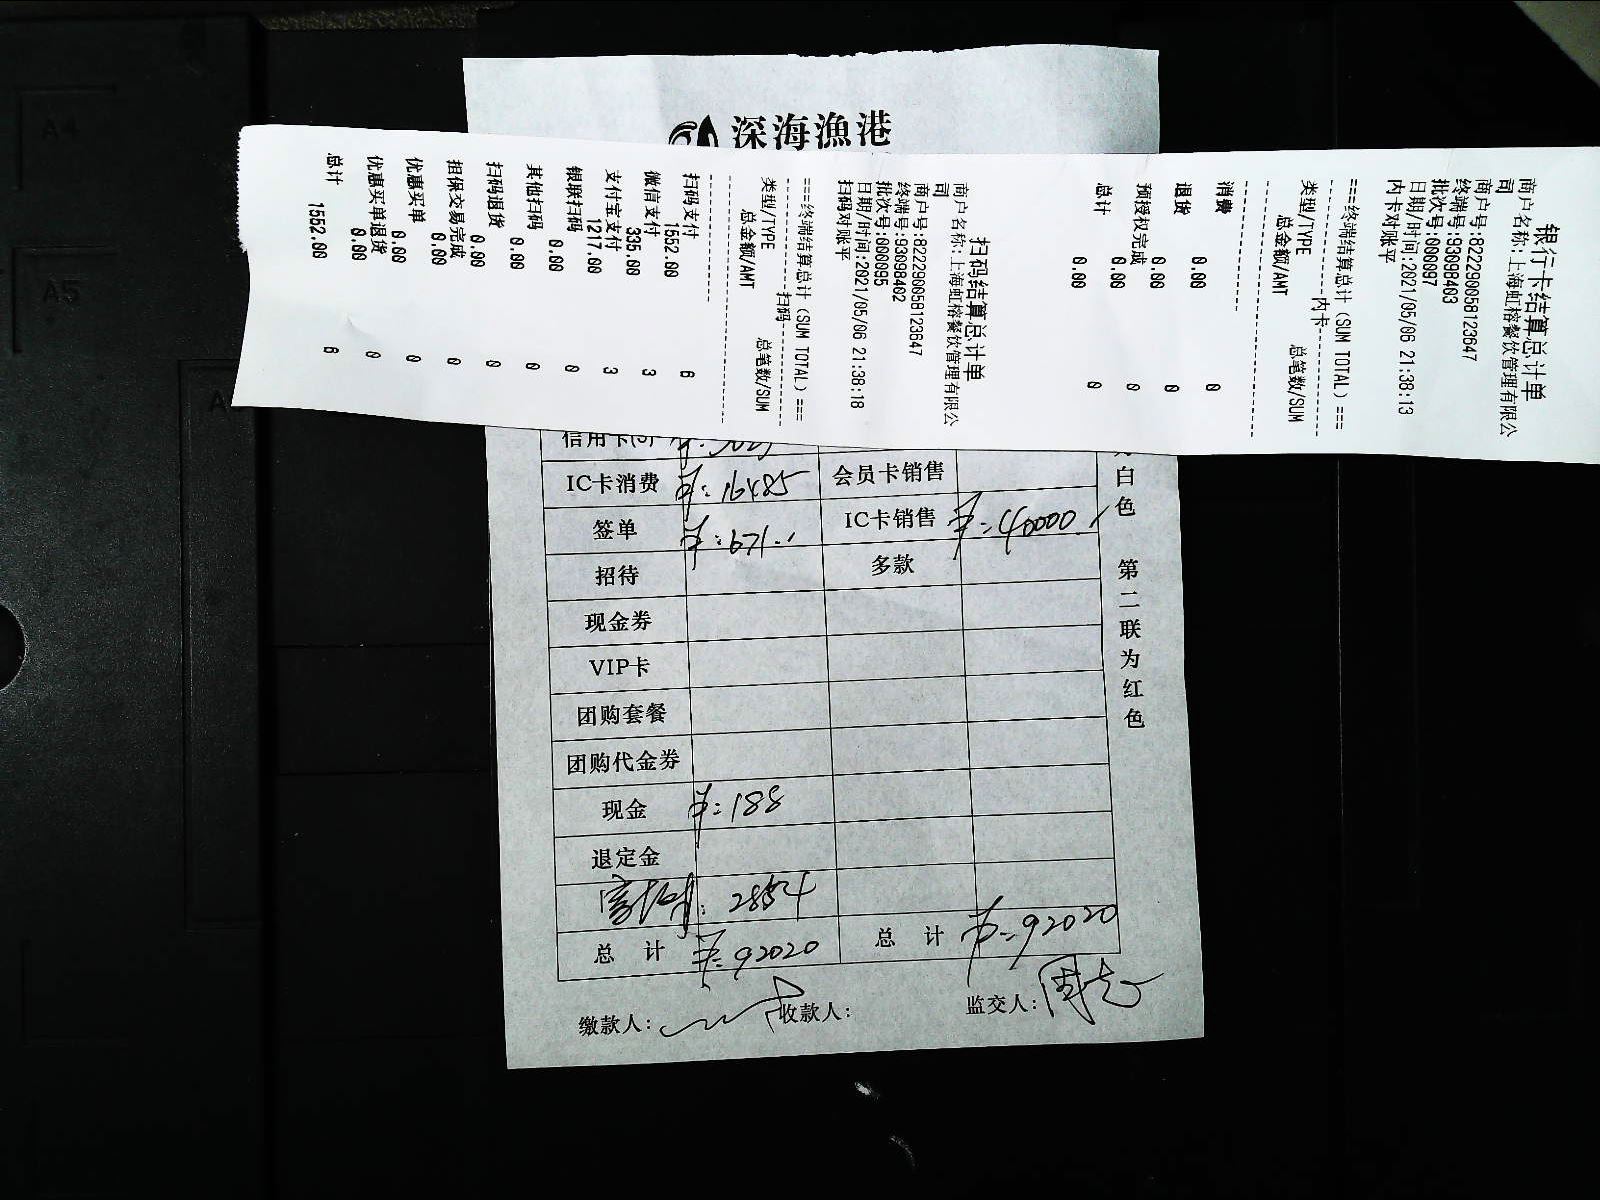 深海漁港
银行卡结算总计单
商户名称:上海虹榕餐饮管理有限公
司
商户号:822290058123647
终端号:93098403
批次号:000097
日期/时间:2021/05/06 21:38:13
内卡对账平
===终端结算总计(SUM TOTAL)===
内卡
类型/TYPE 总笔数/SUM
总金额/AMT
消费 0
0.00
退货 0
0.00
预授权完成 0
0.00
总计 0
0.00
扫码结算总计单
商户名称:上海虹榕餐饮管理有限公
司
商户号:822290058123647
终端号:93098402
批次号:000095
日期/时间:2021/05/06 21:38:18
扫码对账平
===终端结算总计(SUM TOTAL)===
扫码
类型/TYPE 总笔数/SUM
总金额/AMT
扫码支付 6
1552.00
微信支付 3
335.00
支付宝支付 3
1217.00
银联扫码 0
0.00
其他扫码 0
0.00
扫码退货 0
0.00
担保交易完成 0
0.00
优惠买单 0
0.00
优惠买单退货 0
0.00
总计 6
1552.00
IC卡消费 ¥:16485 会员卡销售
签单 ¥:671.. IC卡销售 ¥:40000
招待 多款
现金券
VIP卡
团购套餐
团购代金券
现金 ¥:188
退定金
总 计 ¥:92020 总 计 ¥:92020
缴款人: 收款人: 监交人:
白色 第二联为红色